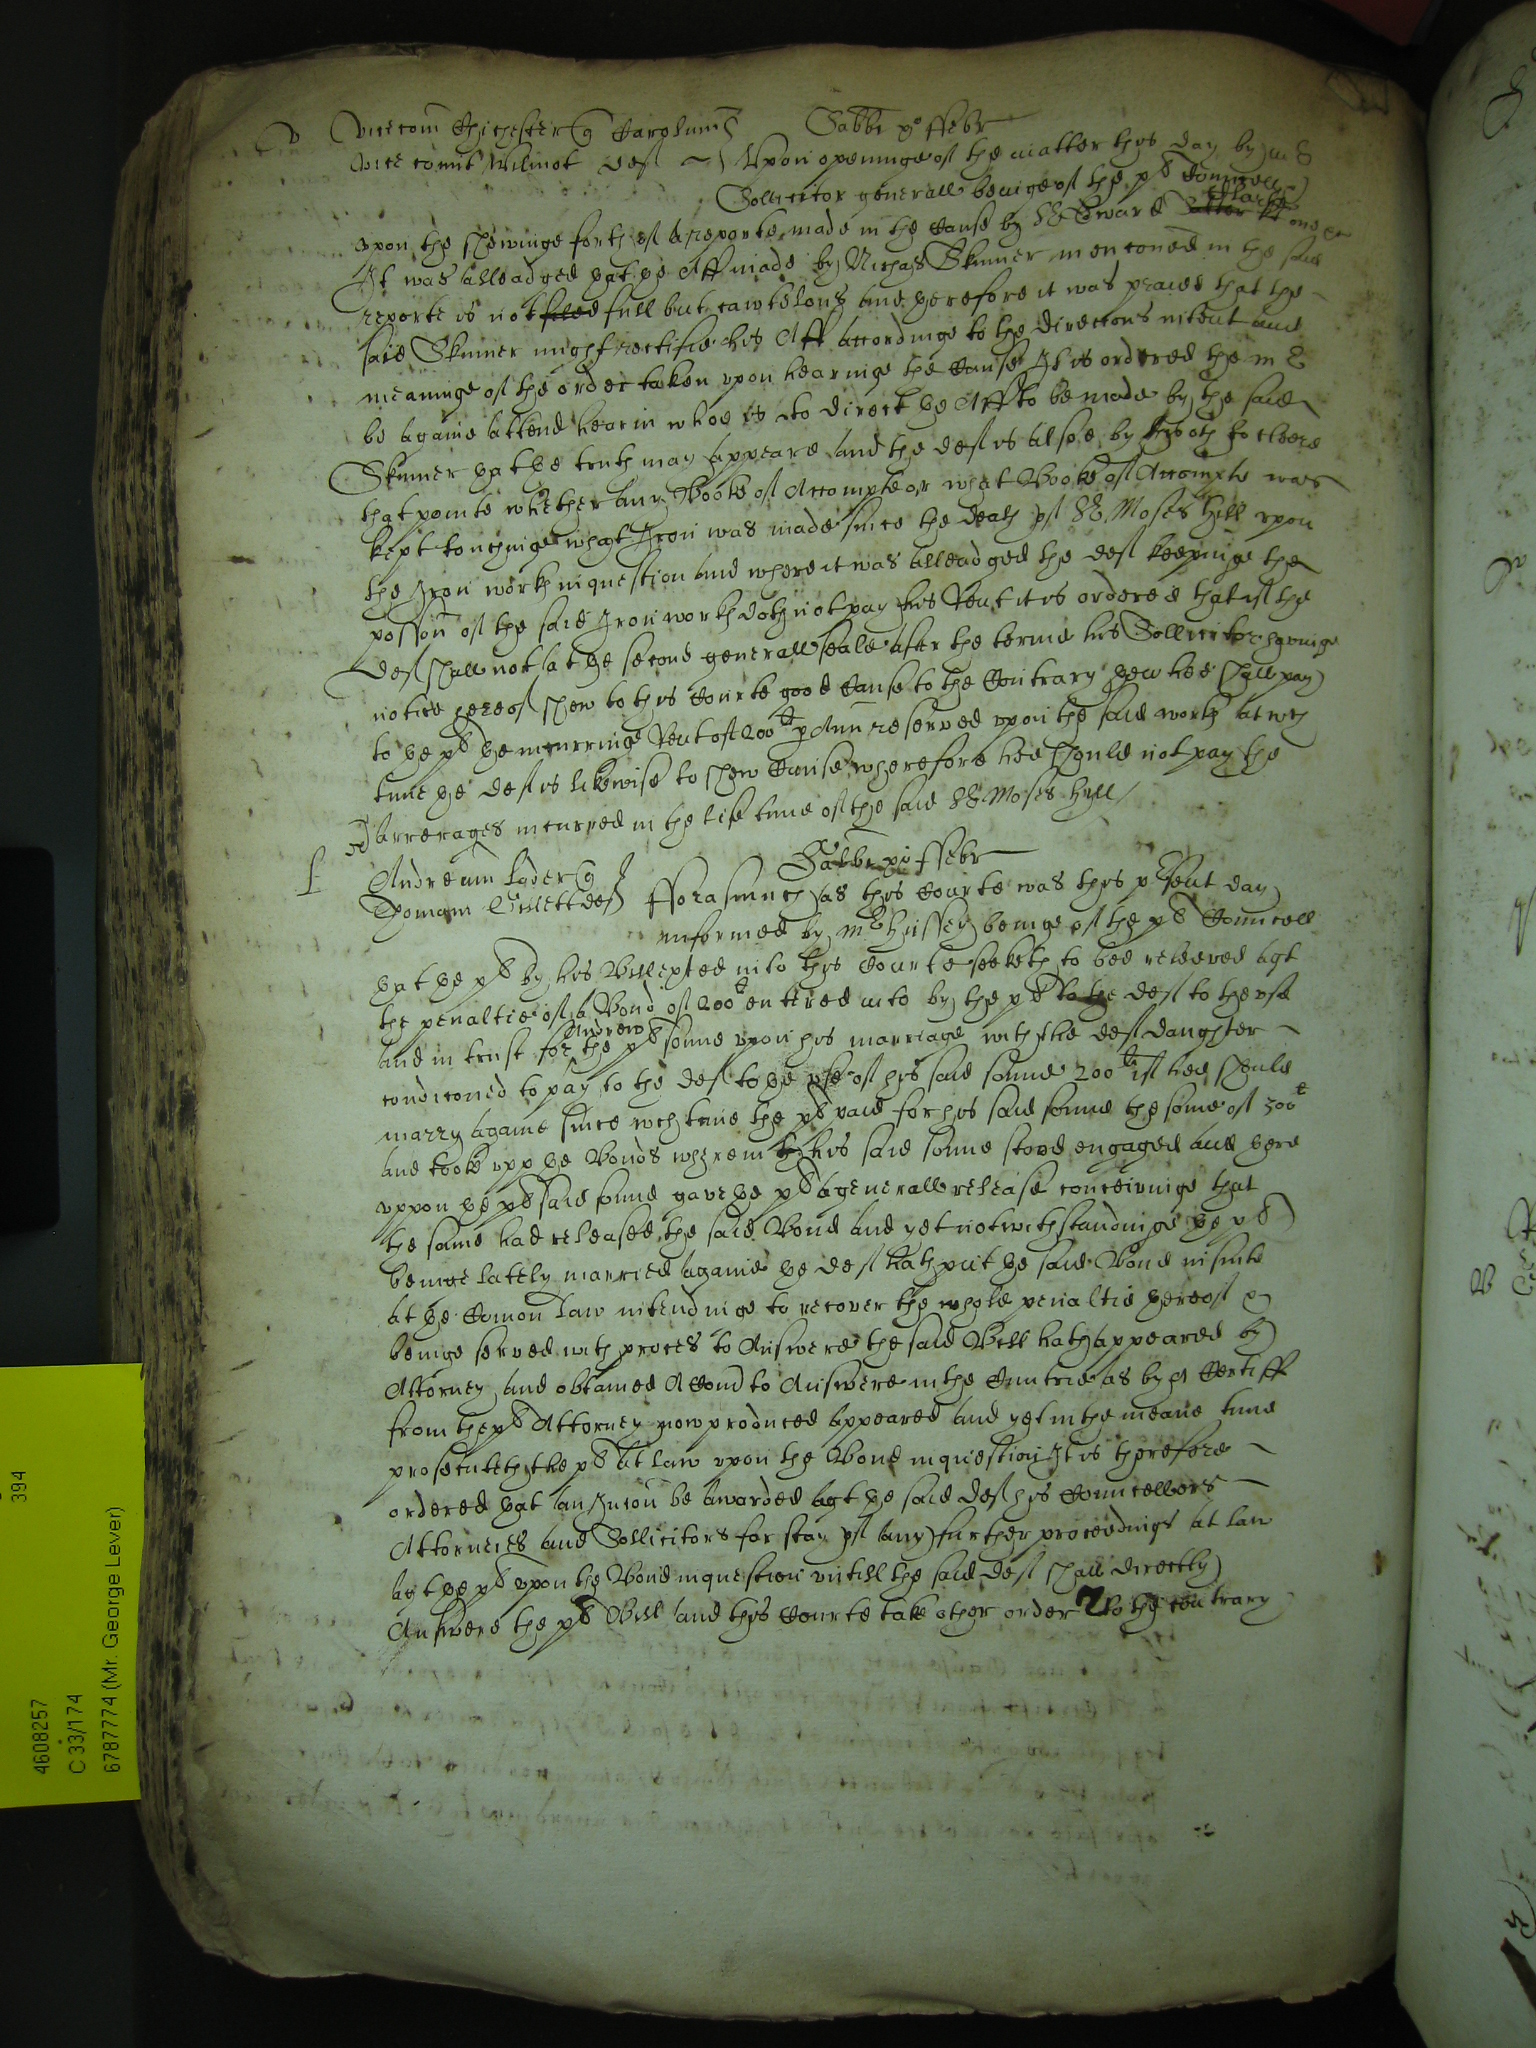 V Vicecom Chichester q Carolum Sabbi po ffebr
Vice comit Wilmot def Vpon openinge of the matter this day by mr
Sollicitor generall beinge of the pl Councell
Clarke
vpon the shewinge forth of a reporte made in the Cause by Sr Edward Salter kt one &c
It was alleadged yat ye Aff made by Nichas Skinner menconed in the said
reporte is not filed full but cawtelous and therefore it was praied that the
said Skinner might rectifie his Aff accordinge to the direccons intent and
meaninge of the order taken vpon hearinge the Cause It is ordered the mr
be againe attend hearin whoe is to direct ye Aff to be made by the said
Skinner yat ye truth may appeare and the def is alsoe by to cleere
that pointe whether any Booke of Accompte or what Booke of Accompte was
kept touchinge what Iron was made since the death of Sr Moses Hill vpon
the Iron work in question and where it was alleadged the def keepinge the
possion of the said Iron work doth not pay his Rent it is ordered that if the
def shall not at ye second generall seale after the terme his Sollicitor havinge
notice hereof shew to this Courte good Cause to the Contrary yen hee shall pay
to ye pl ye incurringe Rent of 200li p Ann reserved vpon the said work at wch
time ye def is likewise to shew Cause wherefore hee should not pay the
arrerages incurred in the life time of the said Sr Moses Hyll
Sabbi po ffebr
L Andream Loder q
Thomam Gillett def fforasmuch as this Courte was this present day
informed by mr Hussey beinge of the pl Councell
yat ye pl by his Bill exted into this Courte seeketh to bee releeved agt
the penaltie of a Bond of 200li entred into by the pl to the def to the vse
Andrew
and in trust for the pl sonne vpon his marriage with the def daughter
condiconed to pay to the def to ye vse of his said sonne 200li if hee should
marry againe since wch time the pl paid for his said sonne the some of 300li
and tooke vpp ye Bonds wherein his said sonne stood engaged and here
vppon ye pl said sonne gave ye pl a generall release conceivinge that
the same had released the said Bond and yet notwithstandinge ye pl
beinge lately married againe ye def hath put ye said Bond in suite
at ye Comon law intendinge to recover the whole penaltie hereof &
beinge served with proces to Answere the said Bill hath appeared by
Attorney and obtained A Comd to Answere in the Cuntrie as by A Certiff
from the pl Attorney now produced appeared and yet in the meane time
prosecuteth the pl at law vpon the Bond in question It is therefore
ordered yat an Iniucon be awarded agt ye said def his Councellors
Attorneies and Sollicitors for stay of any further proceedinge at law
agt ye pl vpon the Bond in question vntill the said def shall directly
Answere the pl Bill and this Courte take other order to the contrary
394
4608257
C 33/174
6787774 (Mr. George Lever)